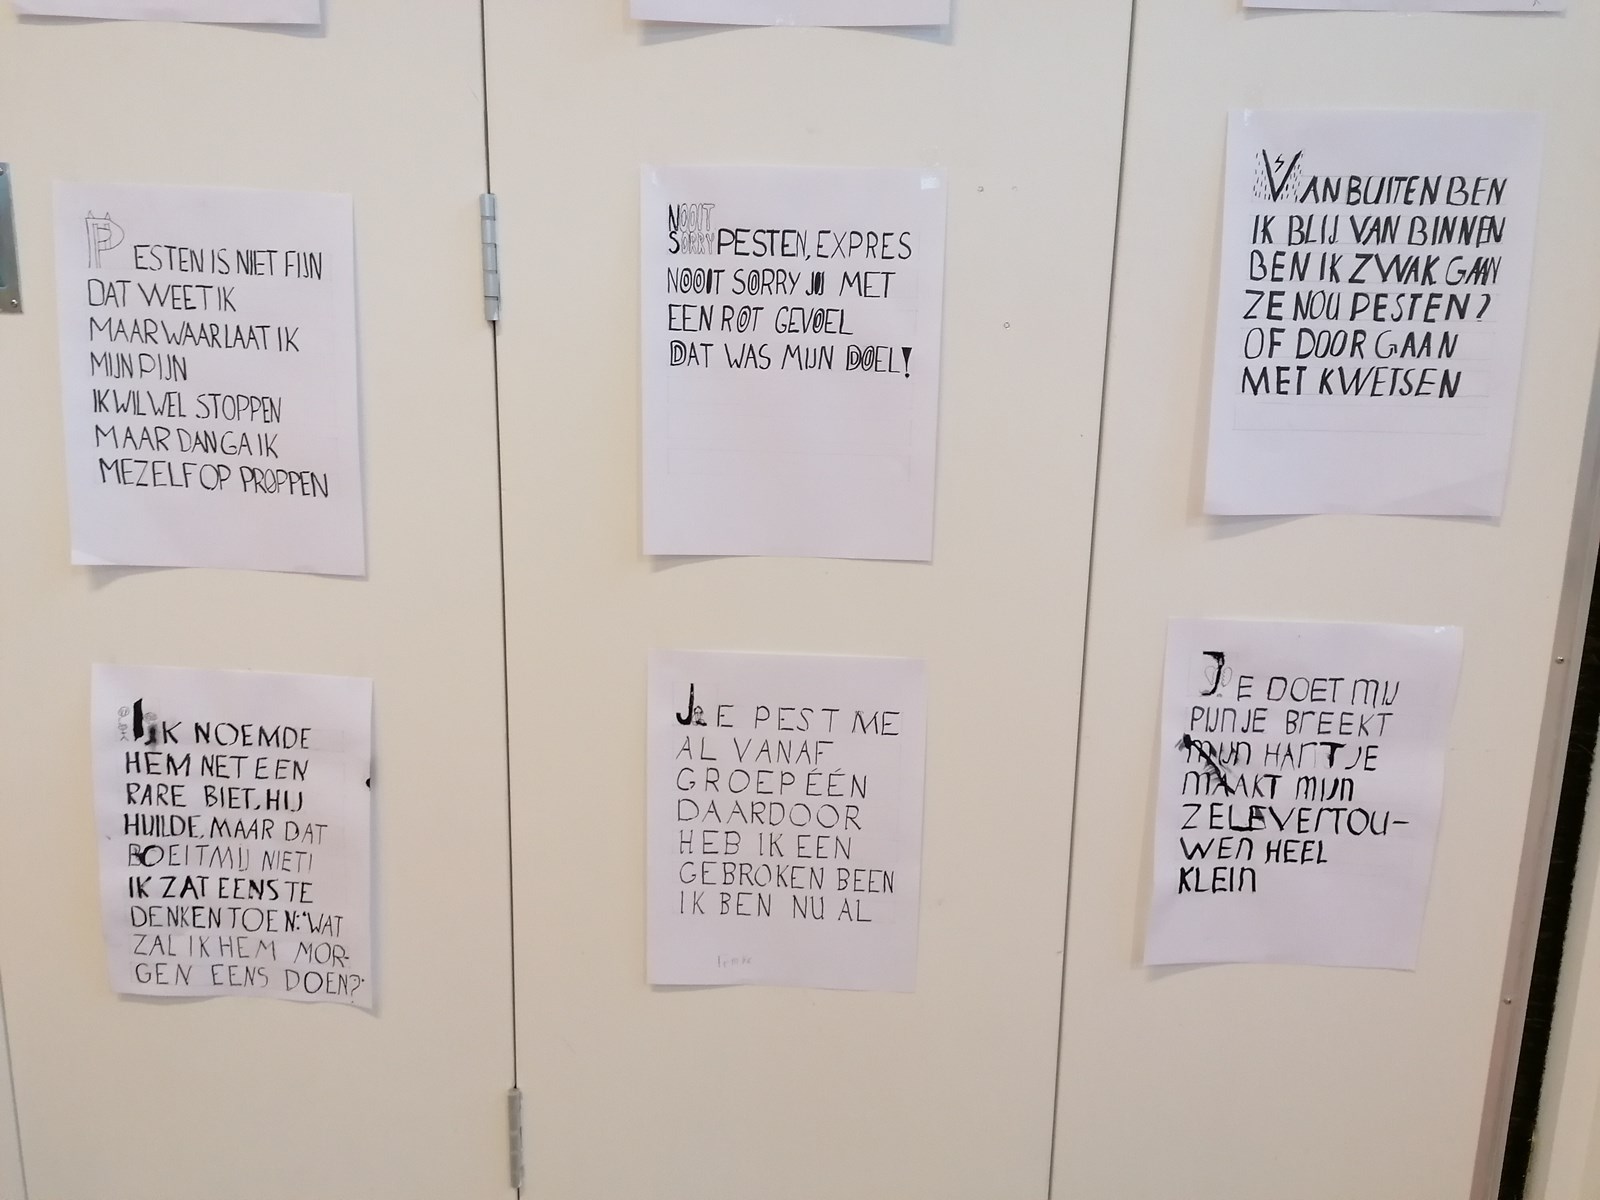 PESTEN IS NIET FIJN
DAT WEET IK
MAAR WAAR LAAT IK
MIJN PIJN
IK WIL WEL STOPPEN
MAAR DAN GA IK
MEZELF OP PROPPEN
NOOIT
SORRY PESTEN, EXPRES
NOOIT SORRY JIJ MET
EEN ROT GEVOEL
DAT WAS MIJN DOEL!
VAN BUITEN BEN
IK BLIJ VAN BINNEN
BEN IK ZWAK GAAN
ZE NOU PESTEN?
OF DOOR GAAN
MET KWETSEN
IK NOEMDE
HEM NET EEN
RARE BIET, HIJ
HUILDE, MAAR DAT
BOEIT MIJ NIET!
IK ZAT EENS TE
DENKEN TOEN: "WAT
ZAL IK HEM MOR-
GEN EENS DOEN?"
JE PEST ME
AL VANAF
GROEP ÉÉN
DAARDOOR
HEB IK EEN
GEBROKEN BEEN
IK BEN NU AL
JE DOET MIJ
PIJN JE BREEKT
MIJN HART JE
MAAKT MIJN
ZELFVERTOU-
WEN HEEL
KLEIN